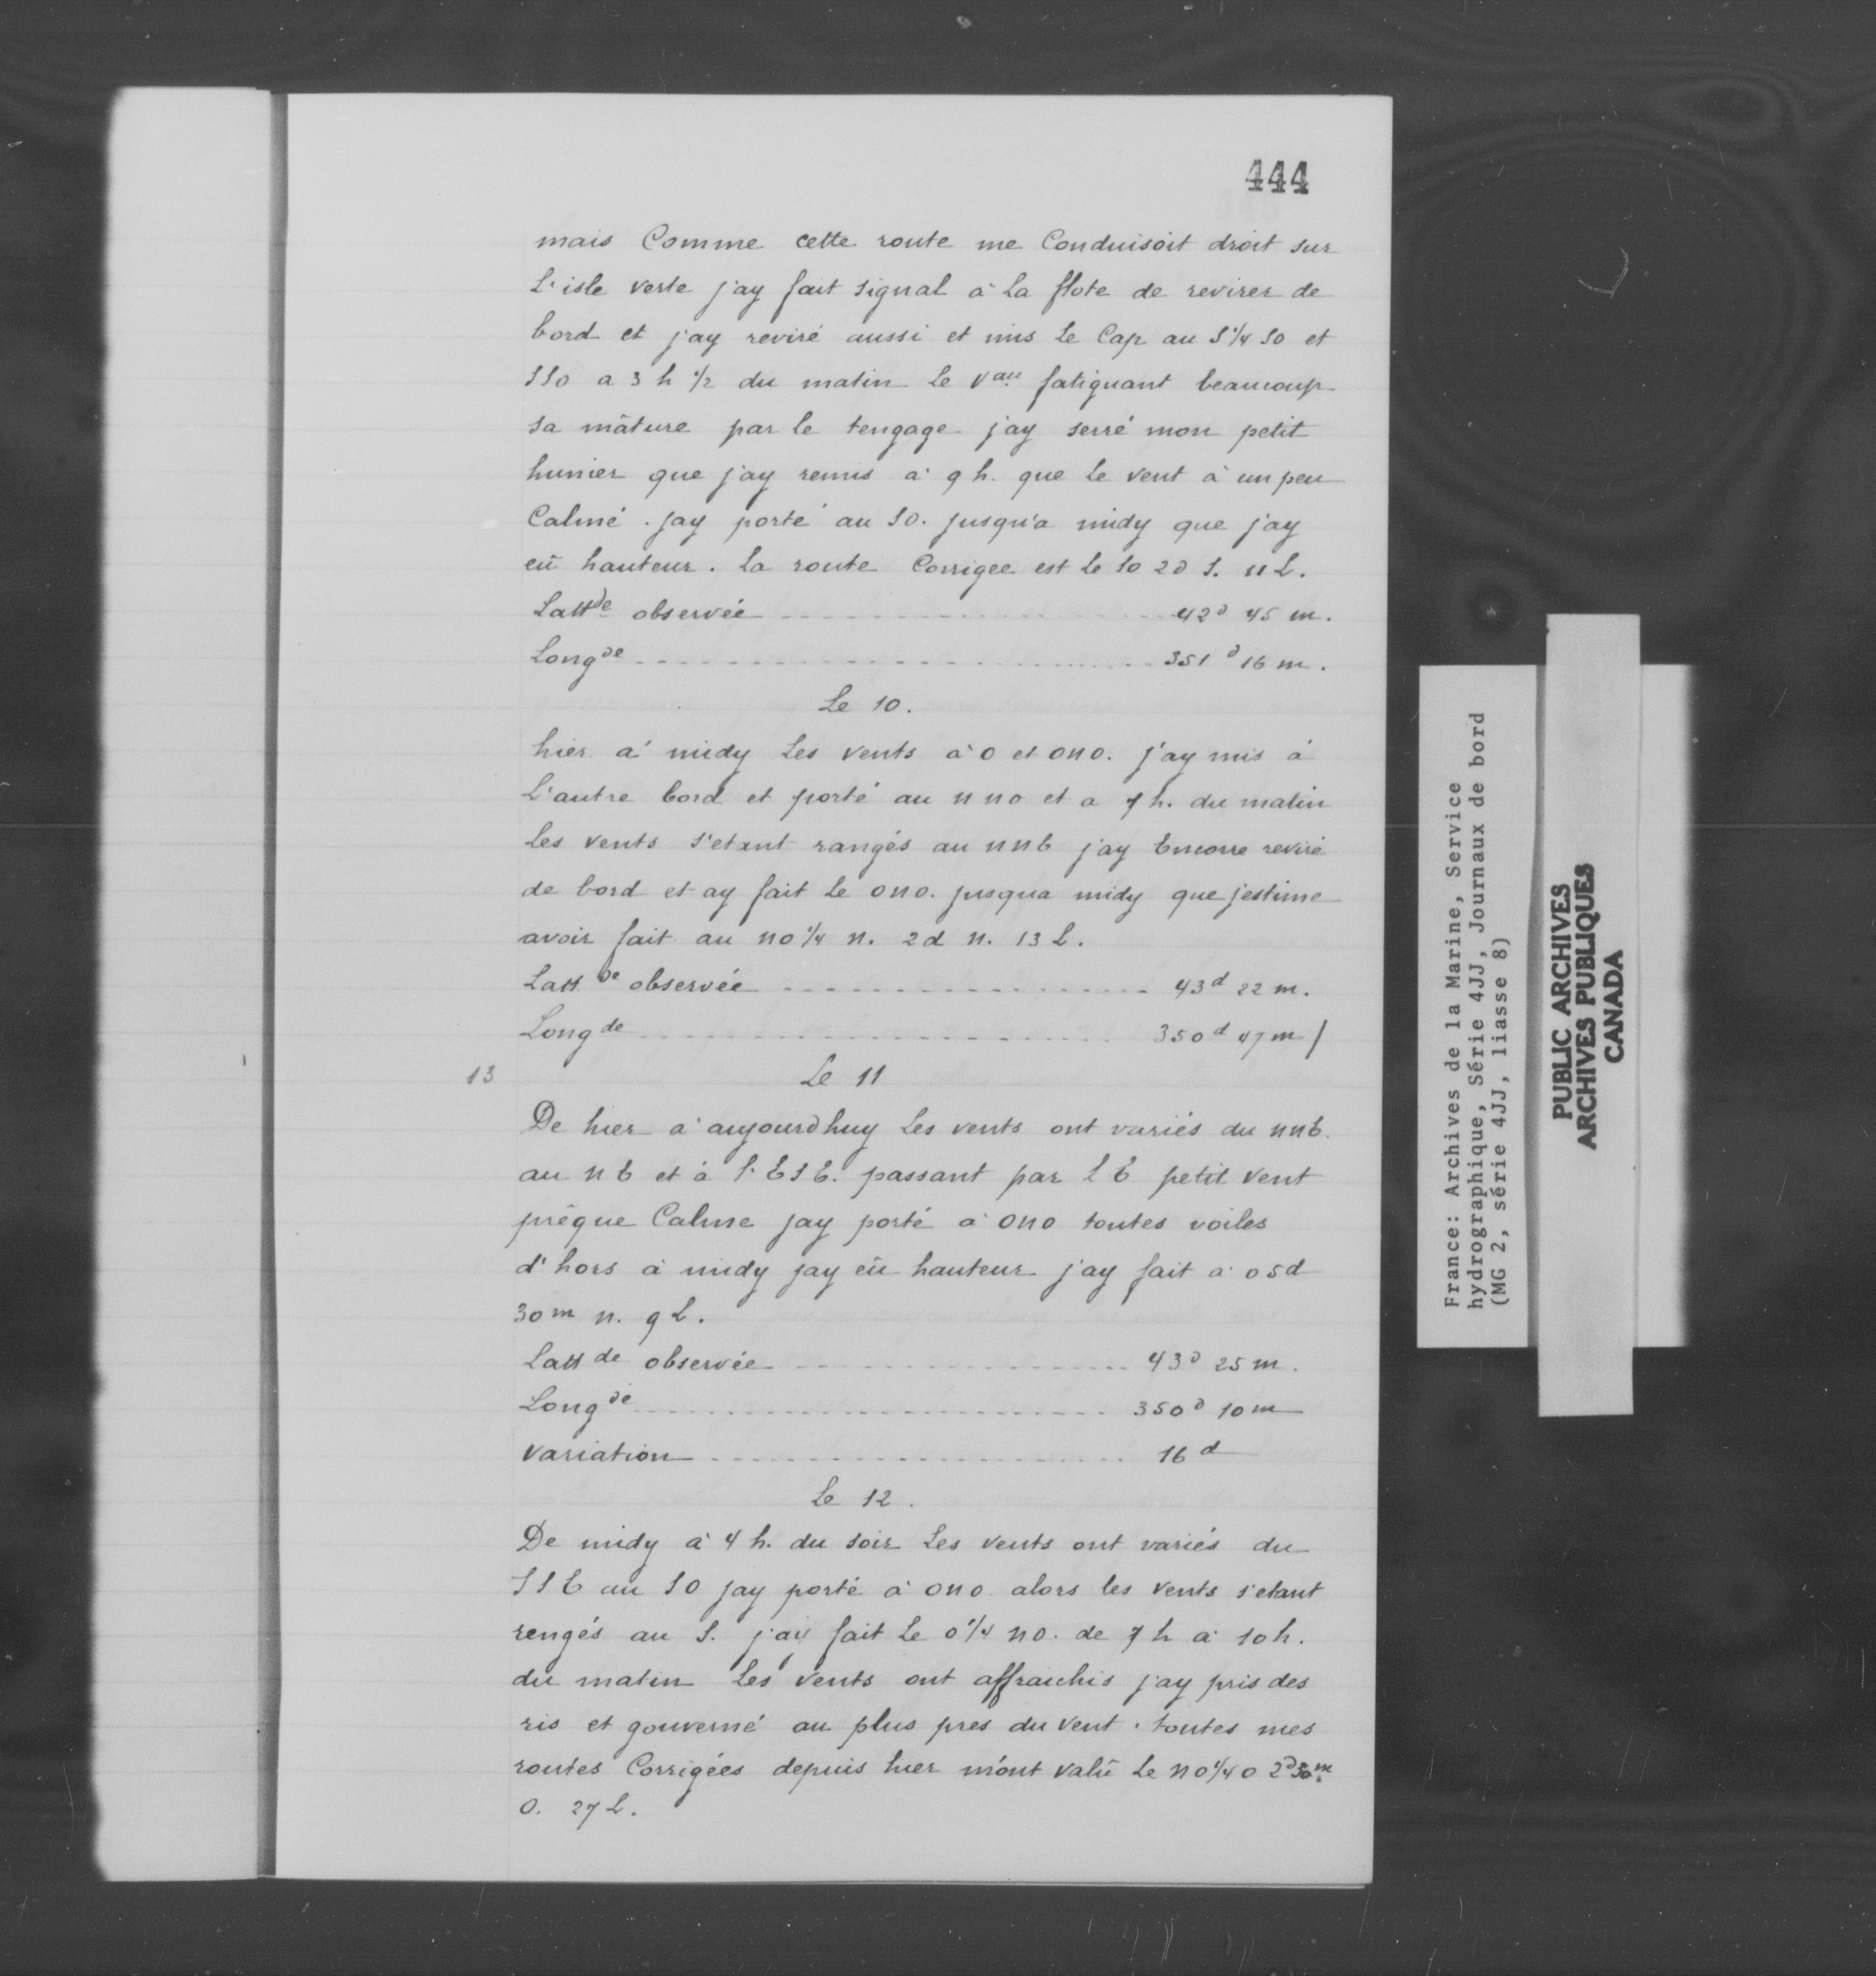 444
mais Comme cette route me Conduisoit droit sur
L'isle verte j'ay fait signal à La flote de revirer de
bord et j'ay reviré aussi et mis Le Cap au S 1/4 SO et
SSO a 3 h 1/2 du matin Le Vau fatiguant beaucoup
sa mâture par le tengage jay serré mon petit
hunier que j'ay remis à 9 h. que le vent à un peu
Calmé. Jay porté au SO. jusqu'a midy que j'ay
eû hauteur. La route Corrigee est le SO 2d S. 11 L.
Lattde observée 42d 45 m.
Longde 351d 16 m.
Le 10.
hier à midy Les vents à O et ONO. j'ay mis à
L'autre bord et porté au NNO et a 7 h. du matin
Les vents s'etant rangés au NNE j'ay Encorre reviré
de bord et ay fait Le ONO. jusqua midy que jestime
avoir fait au NO 1/4 N. 2d N. 13 L.
Lattde observée 43d 22 m.
Longde 350d 47 m /
13
Le 11
De hier à aujourdhuy Les vents ont variés du NNE.
au NE et à l'ESE. passant par LE petit vent
prêque Calme jay porté à ONO toutes voiles
d'hors à midy jay eû hauteur j'ay fait à O 5d
30m N. 9 L.
Lattde observée 43d 25 m.
Longde 350d 10 m
Variation 16d
Le 12.
De midy à 4 h. du soir Les vents ont variés du
SSE au SO jay porté à ONO alors les vents s'etant
rengés au S. j'ay fait Le O 1/4 NO. de 7 h à 10 h.
du matin Les vents ont affraichis j'ay pris des
ris et gouverné au plus pres du vent. toutes mes
routes Corrigées depuis hier m'ont valû Le NO 1/4 O 2d 30m
O. 27 L.
France: Archives de la Marine, Service
hydrographique, Série 4JJ, Journaux de bord
(MG 2, série 4JJ, liasse 8)
PUBLIC ARCHIVES
ARCHIVES PUBLIQUES
CANADA